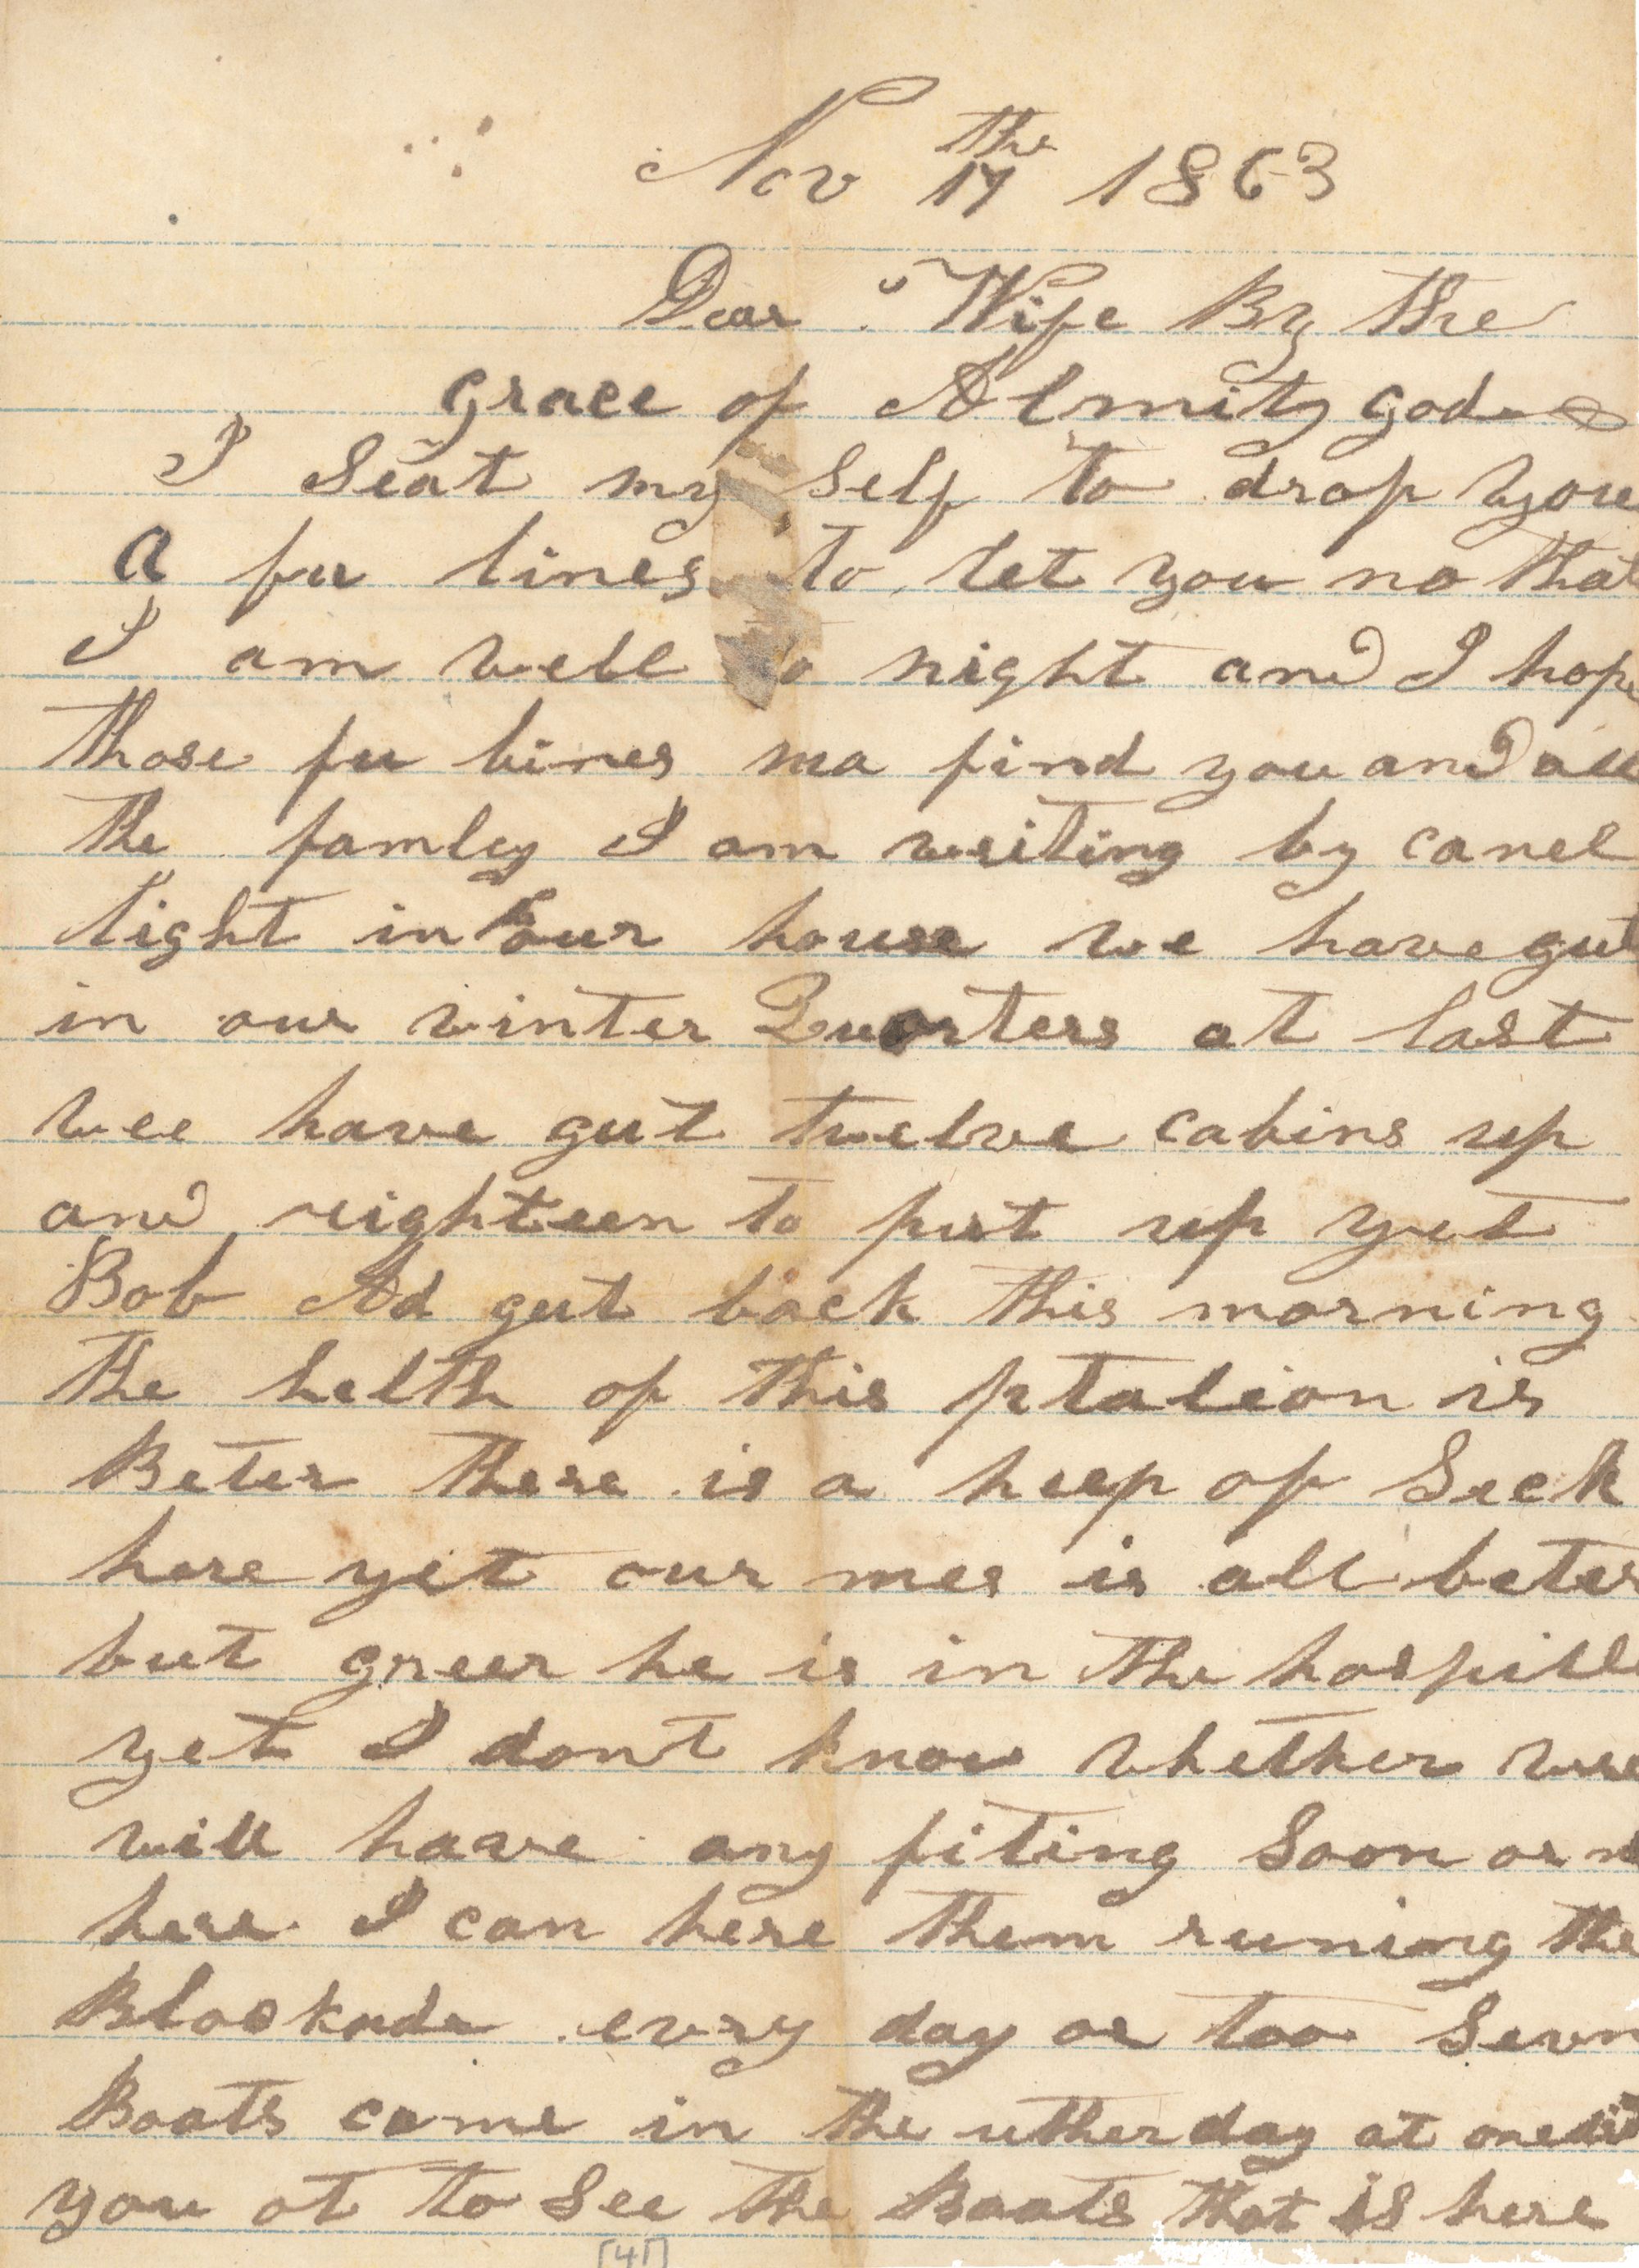 Nov 17 the 1863
Dear Wife By the
grace of Almity god
I Seat my Self to drop you
a fu lines to let you no that
I am well to night and I hope
those fu lines ma find you and all
the famley I am writing by canel
light in our house we have gut
in our winter Quorters at last
wee have gut twelve cabins up
and eighteen to put up yet
Bob Ad gut back this morning
the helth of this ptalion is
Beter there is a heep of Seek
here yet our mes is all beter
but greer he is in the hospitle
yet I dont know whether wee
will have any fiting Soon or
here I can here them runing the
Blockade every day or too Sevn
Boats come in the uther day at one
you ot to See the Boats that is here
[41]